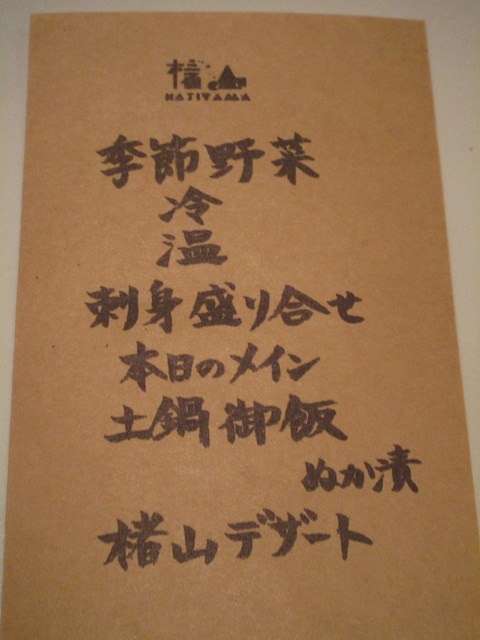 楮山
KAJIYAMA
季節野菜
冷
温
刺身盛り合せ
本日のメイン
土鍋御飯
ぬか漬
楮山デザート